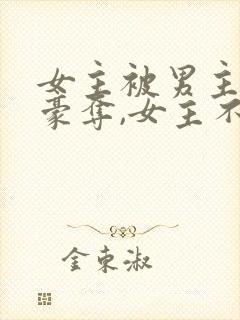 女主被男主
豪夺,女主不
金东淑